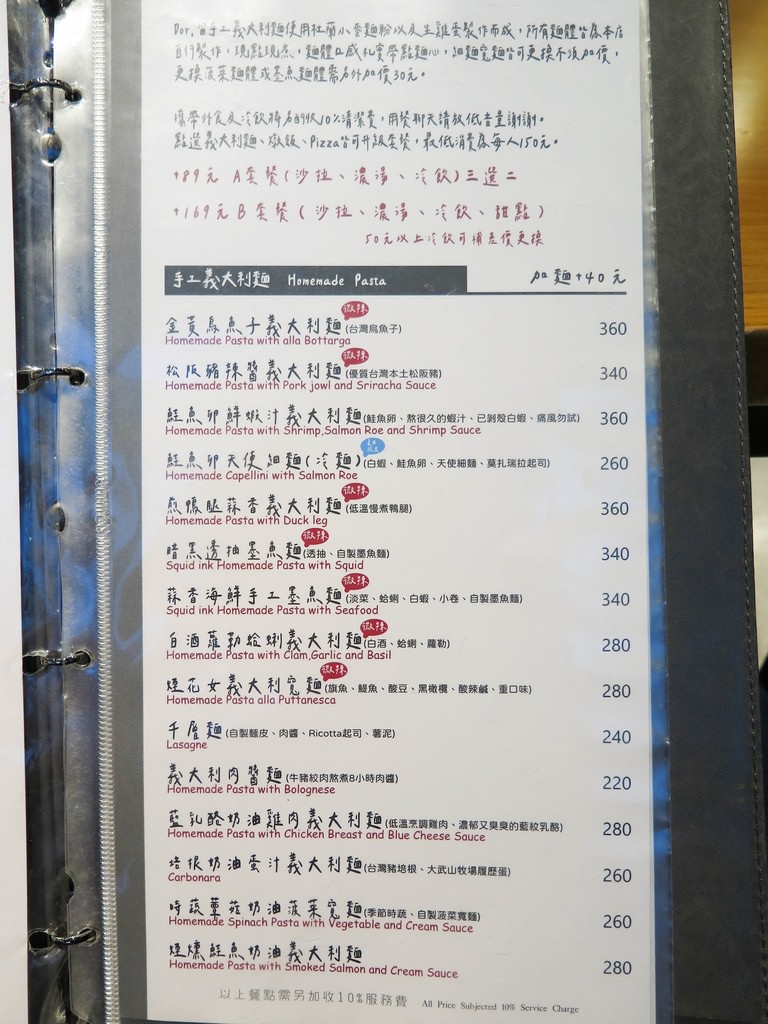 Dor.留手工義大利麵使用杜蘭小麥麵粉以及生雞蛋製作而成，所有麵體皆為本店
自行製作，現點現煮，麵體口感札實帶點麵心，細麵寬麵皆可更換不須加價，
更換菠菜麵體或墨魚麵體需另外加價30元。
攜帶外食及冷飲將另酌收10%清潔費，用餐聊天請放低音量謝謝。
點選義大利麵、燉飯、Pizza皆可升級套餐，最低消費為每人150元。
+89元 A套餐(沙拉、濃湯、冷飲)三選二
+169元 B套餐(沙拉、濃湯、冷飲、甜點)
50元以上冷飲可補差價更換
手工義大利麵 Homemade Pasta 加麵+40元
微辣
金黃烏魚子義大利麵(台灣烏魚子) 360
Homemade Pasta with alla Bottarga
微辣
松阪豬辣醬義大利麵(優質台灣本土松阪豬) 340
Homemade Pasta with Pork jowl and Sriracha Sauce
鮭魚卵鮮蝦汁義大利麵(鮭魚卵、熬很久的蝦汁、已剝殼白蝦、痛風勿試) 360
Homemade Pasta with Shrimp,Salmon Roe and Shrimp Sauce
鮭魚卵天使細麵(冷麵)(白蝦、鮭魚卵、天使細麵、莫扎瑞拉起司) 260
Homemade Capellini with Salmon Roe
微辣
煎鴨腿蒜香義大利麵(低溫慢煮鴨腿) 360
Homemade Pasta with Duck leg
微辣
暗黑透抽墨魚麵(透抽、自製墨魚麵) 340
Squid ink Homemade Pasta with Squid
微辣
蒜香海鮮手工墨魚麵(淡菜、蛤蜊、白蝦、小卷、自製墨魚麵) 340
Squid ink Homemade Pasta with Seafood
微辣
白酒蘿勒蛤蜊義大利麵(白酒、蛤蜊、蘿勒) 280
Homemade Pasta with Clam,Garlic and Basil
微辣
煙花女義大利寬麵(旗魚、鯷魚、酸豆、黑橄欖、酸辣鹹、重口味) 280
Homemade Pasta alla Puttanesca
千層麵(自製麵皮、肉醬、Ricotta起司、薯泥) 240
Lasagne
義大利肉醬麵(牛豬絞肉熬煮8小時肉醬) 220
Homemade Pasta with Bolognese
藍乳酪奶油雞肉義大利麵(低溫烹調雞肉、濃郁又臭臭的藍紋乳酪) 280
Homemade Pasta with Chicken Breast and Blue Cheese Sauce
培根奶油蛋汁義大利麵(台灣豬培根、大武山牧場履歷蛋) 260
Carbonara
時蔬蕈菇奶油菠菜寬麵(季節時蔬、自製菠菜寬麵) 260
Homemade Spinach Pasta with Vegetable and Cream Sauce
煙燻鮭魚奶油義大利麵 280
Homemade Pasta with Smoked Salmon and Cream Sauce
以上餐點需另加收10%服務費 All Price Subjected 10% Service Charge